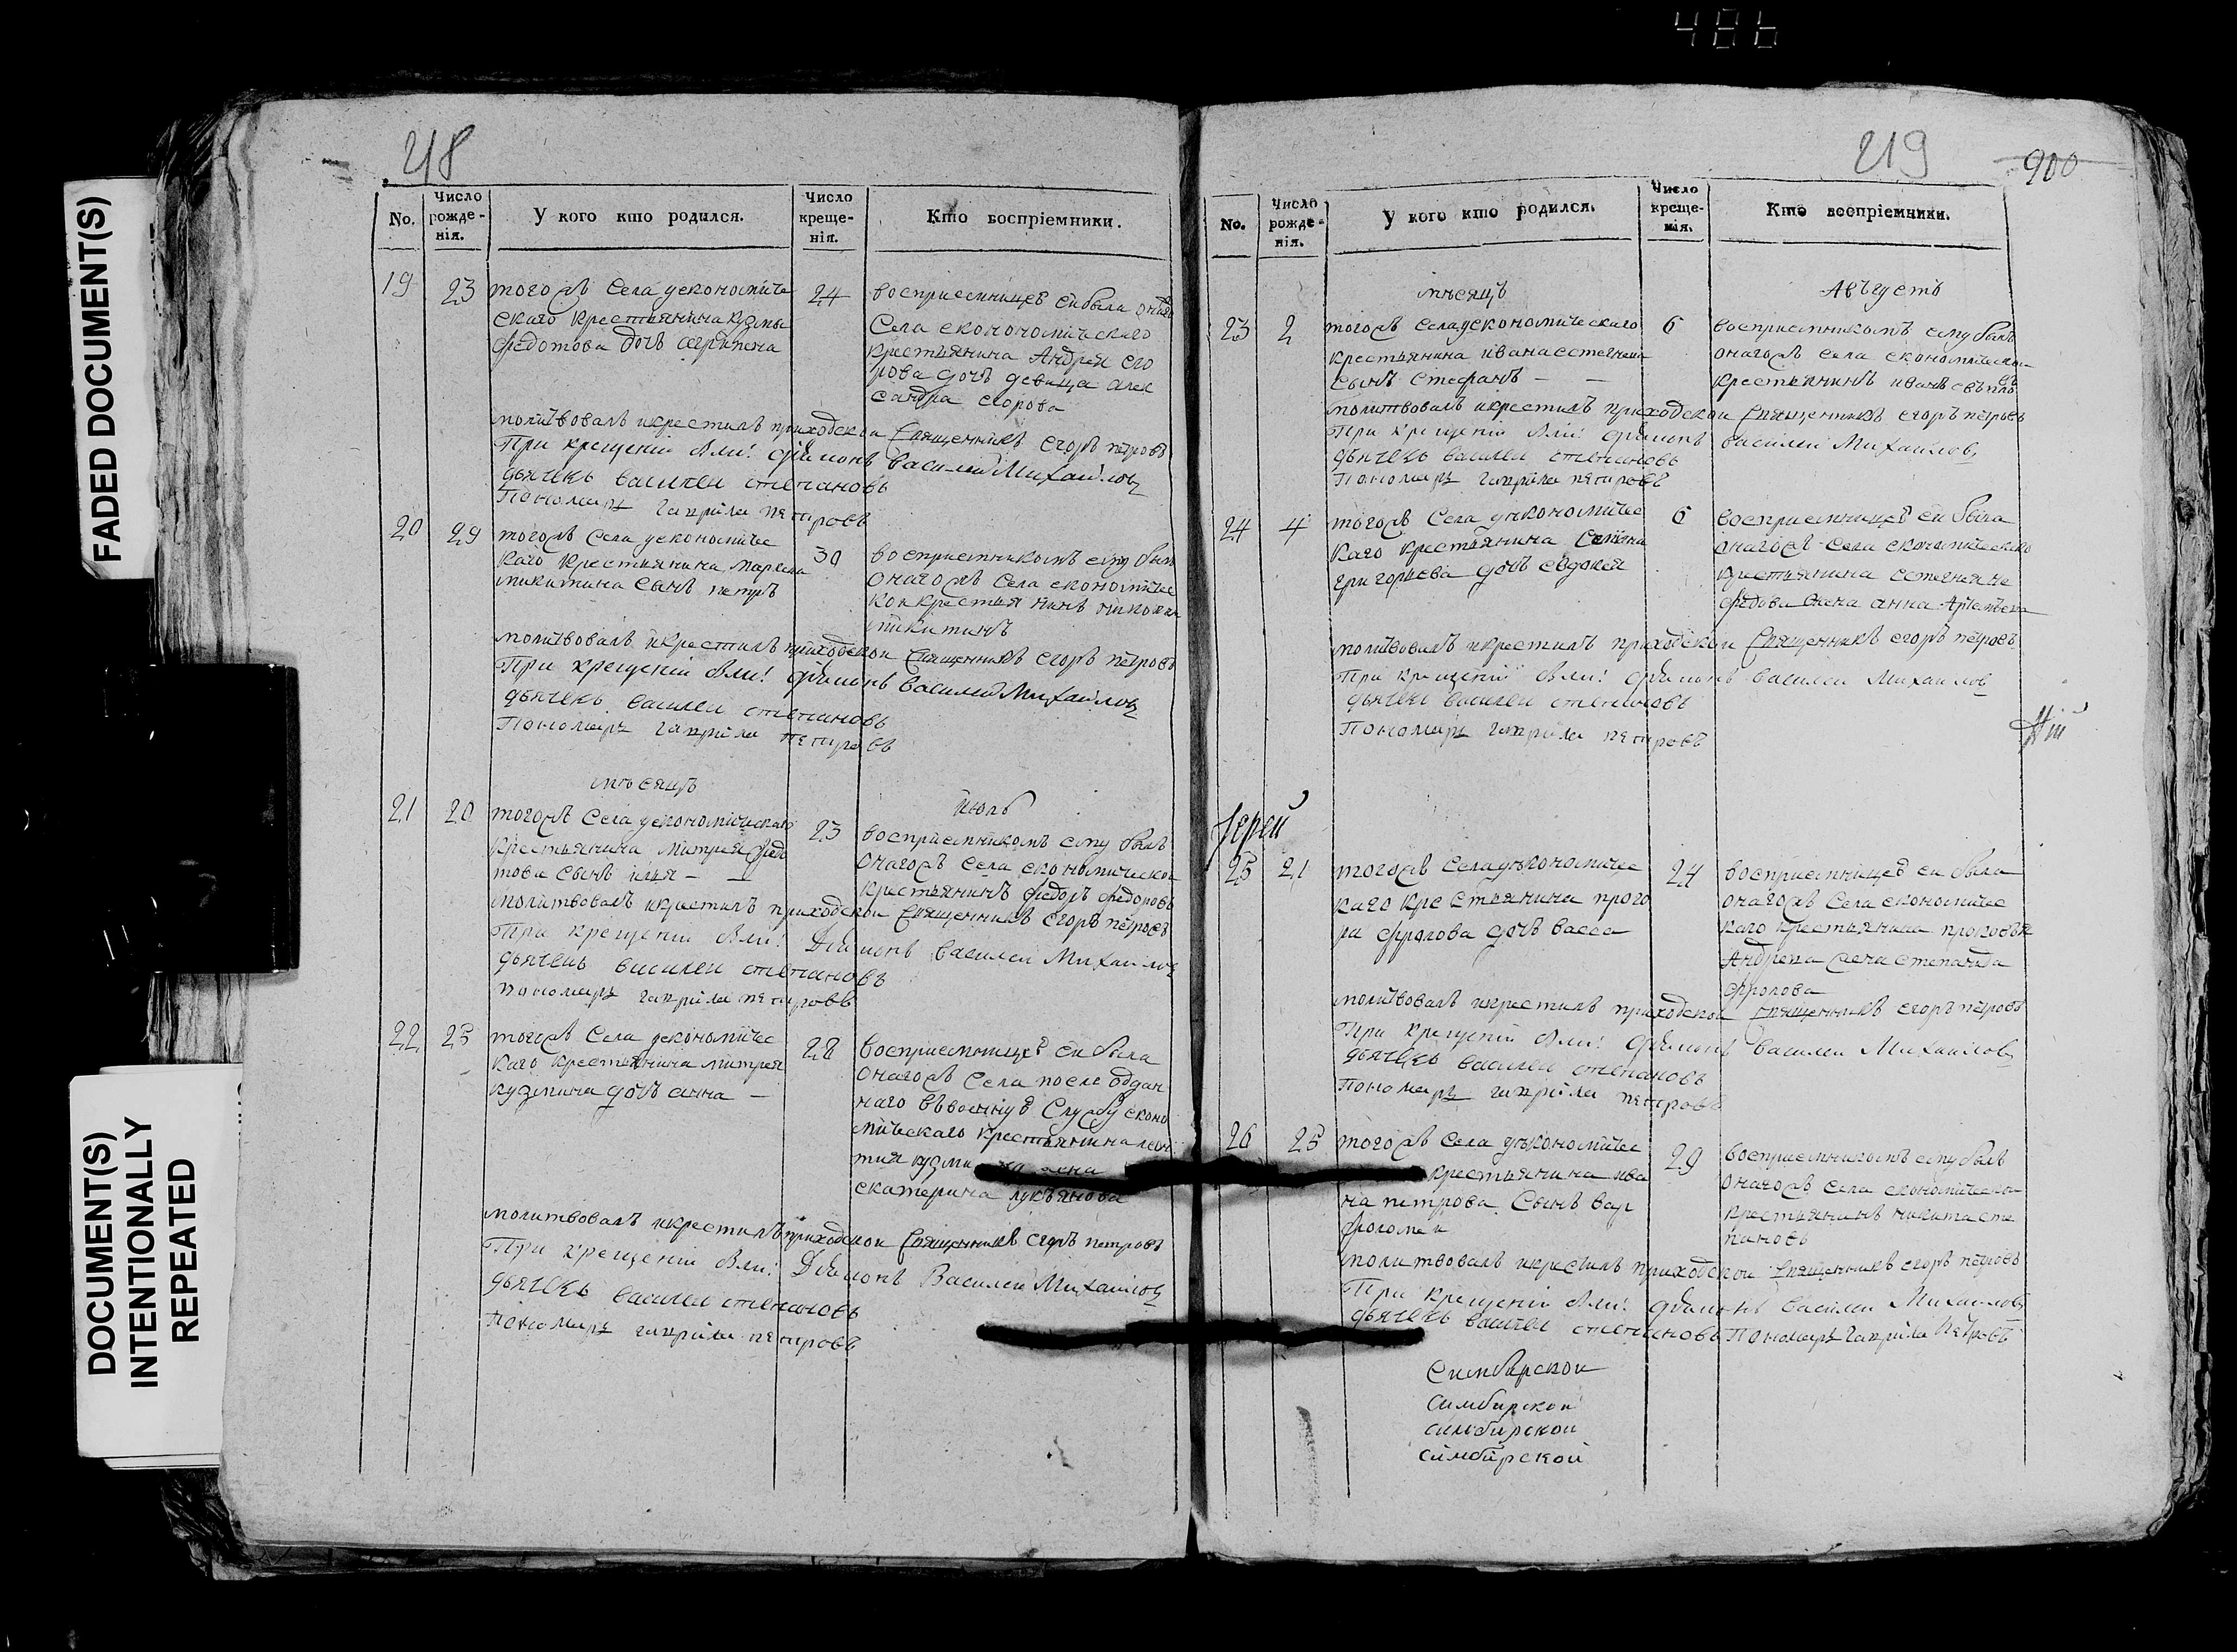 486
FADED DOCUMENT(S)
DOCUMENT(S)
INTENTIONALLY
REPEATED
218
No.
Число рожденія.
У кого кто родился.
Число крещенія.
Кто воспріемники.
19 23
тогожъ села уекономиче
скаго крестьянина кузмы
федотова дочь агрипена
24
восприемницеѣ ей была онаго
села економическаго
крестьянина Андрея его
рова дочь девица алек
сандра егорова
молитвовалъ икрестилъ приходскои Священникъ егоръ петровъ
При крещеніи были: діаконъ василеи Михаиловъ
дьячекъ василеи степановъ
Пономарь гаврила петровъ
20 29
тогожъ села уекономичес
каго крестьянина
никитина сынъ петръ
30
восприемникомъ ему былъ
онагожъ села економичес
кои крестьянинъ
никитинъ
молитвовалъ икрестилъ приходскои Священникъ егоръ петровъ
При крещеніи были: діаконъ василеи Михаиловъ
дьячекъ василеи степановъ
Пономарь гаврила петровъ
месяцъ
июль
21 20
тогожъ села уекономическаго
крестьянина митрея федо
това сынъ илья
23
восприемникомъ ему былъ
онагожъ села економическои
крестьянинъ федоръ федоровъ
молитвовалъ икрестилъ приходскои Священникъ егоръ петровъ
При крещеніи были: Діаконъ василеи Михаиловъ
дьячекъ василеи степановъ
пономарь гаврила петровъ
22 25
тогожъ села уекономичес
каго крестьянина митрея
кузмина дочь анна
28
восприемницеѣ ей была
онагожъ села после оддан
наго ввоинную службу еконо
мическаго крестьянина леон
тия кузмина жена
екатерина лукьянова
молитвовалъ икрестилъ приходскои Священникъ егоръ петровъ
При крещеніи были: Діаконъ Василеи Михаиловъ
дьячекъ василеи степановъ
Пономарь гаврила петровъ
219
900
No.
Число рожденія.
У кого кто родился.
Число крещенія.
Кто воспріемники.
месяцъ
Августъ
23 2
тогожъ села уекономическаго
крестьянина ивана
сынъ стефанъ
6
восприемникомъ ему былъ
онагожъ села економическои
крестьянинъ иванъ
молитвовалъ икрестилъ приходскои Священникъ егоръ петровъ
При крещеніи были: діаконъ василеи Михаиловъ
дьячекъ василеи степановъ
Пономарь гаврила петровъ
24 4
тогожъ села уекономичес
каго крестьянина
григорьева дочь евдокея
6
восприемницеѣ ей была
онагожъ села економическаго
крестьянина
жена анна
молитвовалъ икрестилъ приходскои Священникъ егоръ петровъ
При крещеніи были: діаконъ василеи Михаиловъ
дьячекъ василеи степановъ
Пономарь гаврила петровъ
Іерей
25 21
тогожъ села уекономичес
каго крестьянина
фролова дочь васса
24
восприемницеѣ ей была
онагожъ села економичес
каго крестьянина прокофья
Андреева жена степанида
фролова
молитвовалъ икрестилъ приходскои Священникъ егоръ петровъ
При крещеніи были: діаконъ василеи Михаиловъ
дьячекъ василеи степановъ
Пономарь гаврила петровъ
26 25
тогожъ села уекономичес
крестьянина ива
на петрова сынъ вар
фоломеи
29
восприемникомъ ему былъ
онагожъ села економическои
крестьянинъ никита сте
пановъ
молитвовалъ икрестилъ приходскои Священникъ егоръ петровъ
При крещеніи были: діаконъ василеи Михаиловъ
дьячекъ василеи степановъ Пономарь гаврила петровъ
Симбирскои
симбирскои
симбирскои
симбирской